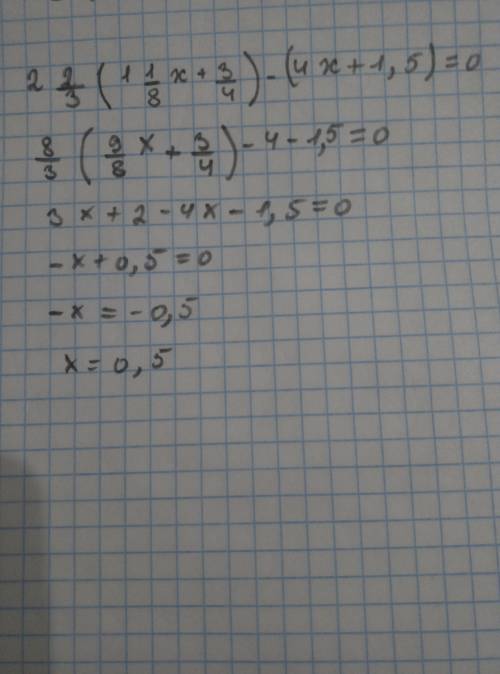 2 2/3 (1 1/8 x + 3/4) - (4x + 1,5) = 0
8/3 (9/8 x + 3/4) - 4 - 1,5 = 0
3x + 2 - 4x - 1,5 = 0
-x + 0,5 = 0
-x = -0,5
x = 0,5